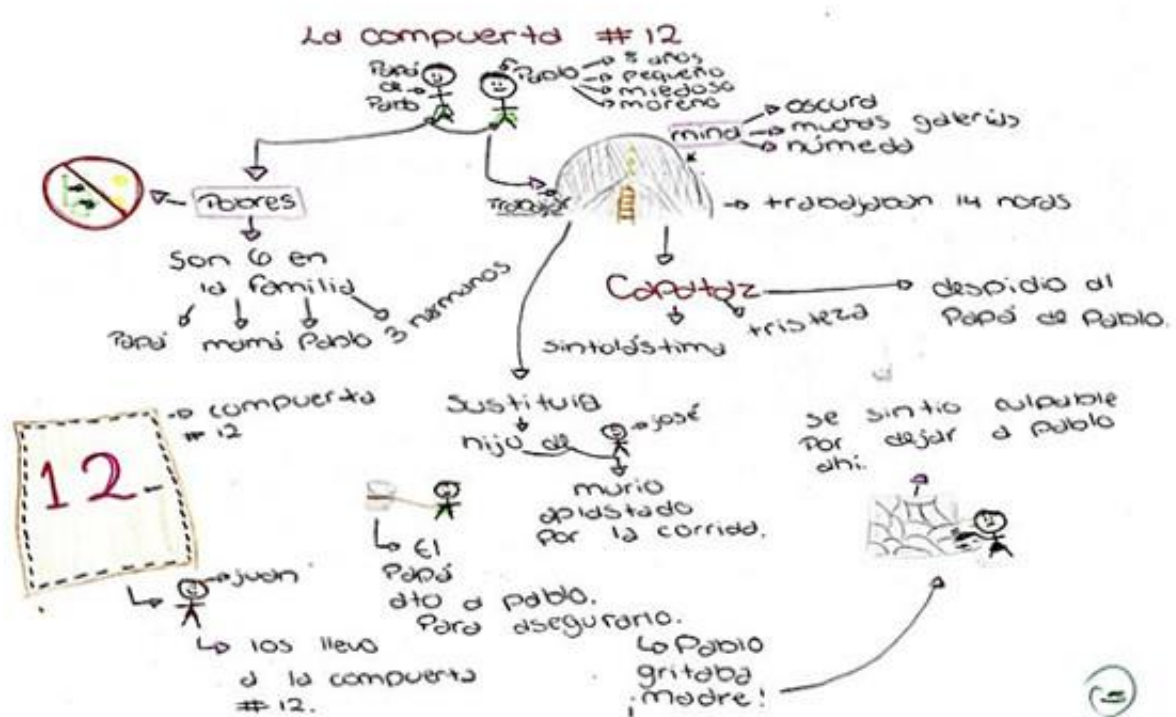 La compuerta #12
Papá
de
Pablo
Pablo
8 años
pequeño
miedoso
moreno
mina
oscura
muchas galerias
húmeda
Pobres
Trabajar
trabajaban 14 horas
Son 6 en
la familia
Papá mamá Pablo 3 hermanos
Capataz
sintolástima
tristeza
despidio al
Papá de Pablo.
compuerta
#12
12
Sustituia
hijo de
josé
murio
aplastado
Por la corrida.
se sintio culpable
Por dejar a Pablo
ahi.
El
Papá
ato a pablo.
Para asegurarlo.
juan
los llevo
a la compuerta
#12.
Pablo
gritaba
¡madre!